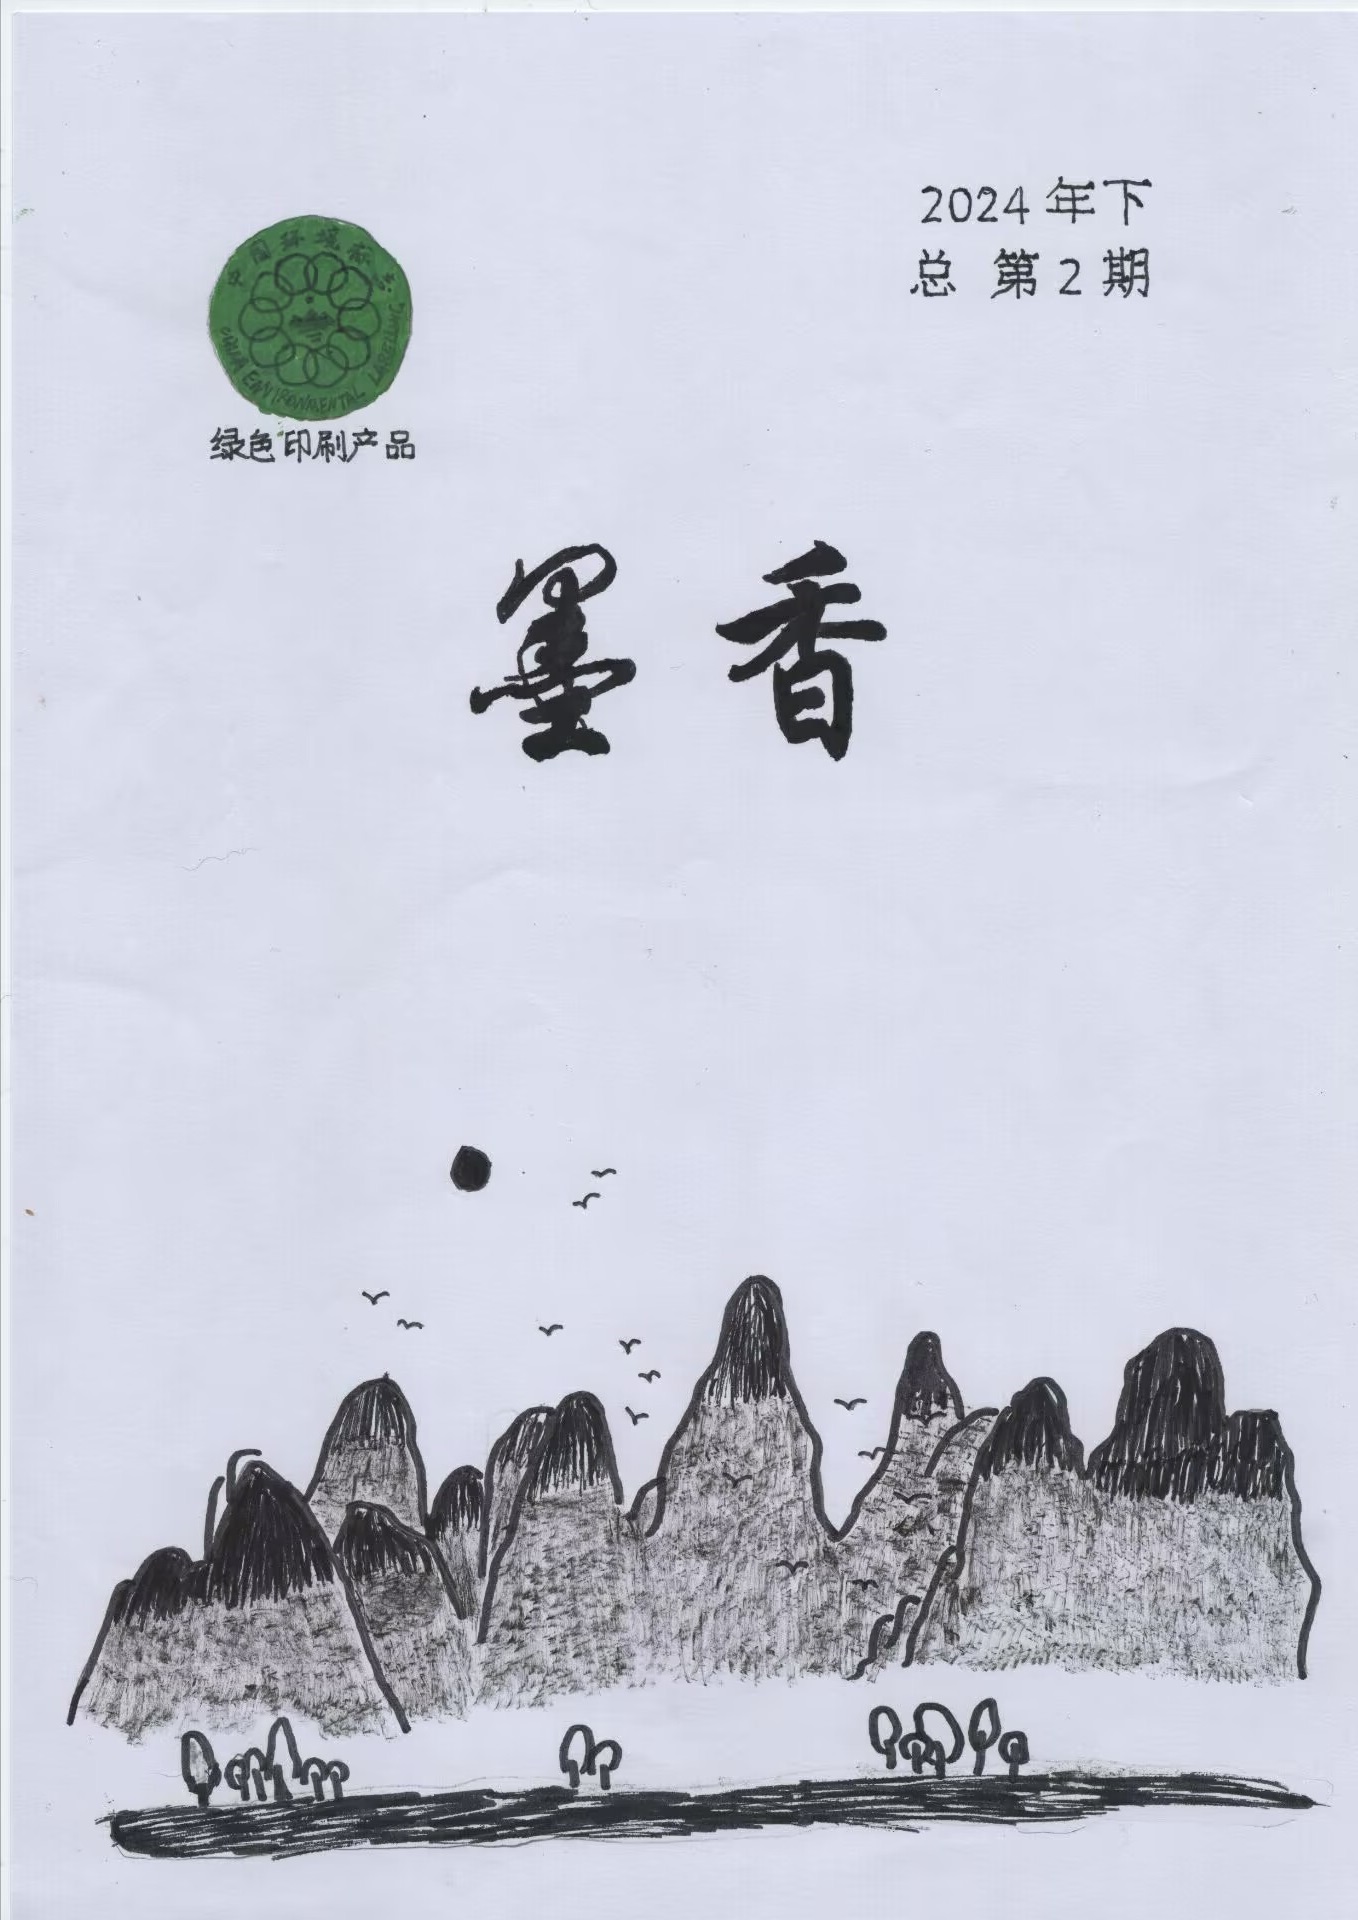 2024年下
总 第2期
中国环境标志
CHINA ENVIRONMENTAL LABELLING
绿色印刷产品
墨香